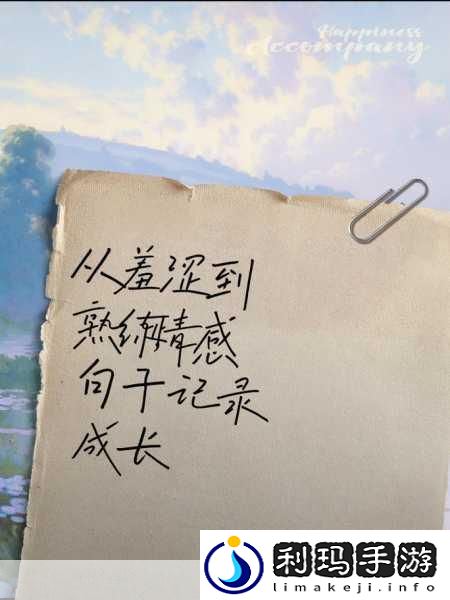 Happiness
Accompany
从羞涩到
熟练情感
句子记录
成长
利玛手游
limakeji.info